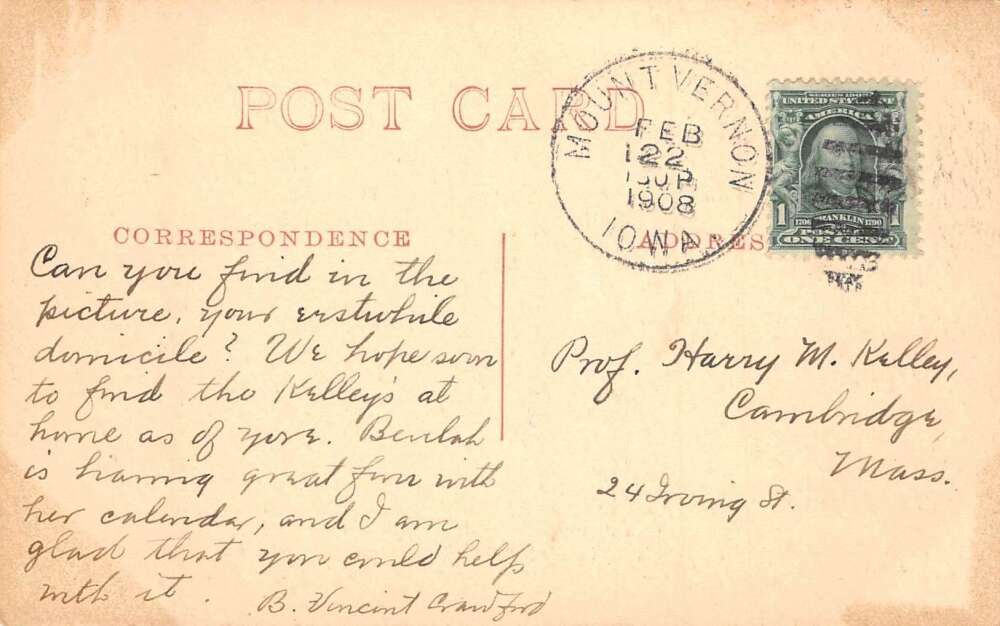 POST CARD
MOUNT VERNON
FEB
22
1908
IOWA
SERIES 1902
UNITED STATES OF
AMERICA
1706 FRANKLIN 1790
1 1
POSTAGE
ONE CENT
CORRESPONDENCE
Can you find in the
picture, your erstwhile
domicile? We hope soon
to find the Kelley's at
home as of yore. Beulah
is having great fun with
her calendar, and I am
glad that you could help
with it.
B. Vincent Crawford
ADDRESS
Prof. Harry M. Kelley,
Cambridge,
Mass.
24 Irving St.